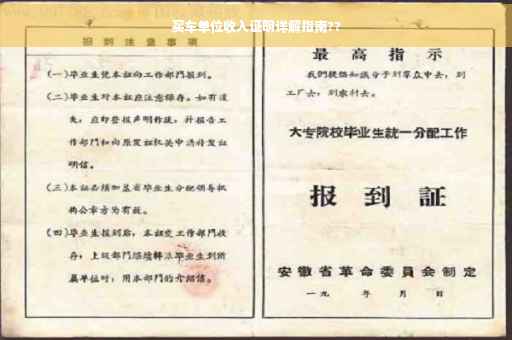 买车单位收入证明详解指南??
报到注意事项
(一)毕业生凭本证向工作部门报到。
(二)毕业生对本证应注意保存。如有遗
失,应即登报声明作废,并报告工
作部门和向原发证机关申请补发证
明信。
(三)本证必须加盖省毕业生分配领导机
构公章方为有效。
(四)毕业生报到后,本证交工作部门收
存,上级部门继续转派毕业生到所
属单位时,用本部门的介绍信。
最高指示
我们提倡知识分子到羣众中去,到
工厂去,到农村去。
大专院校毕业生统一分配工作
报到証
安徽省革命委員会制定
一九 年 月 日